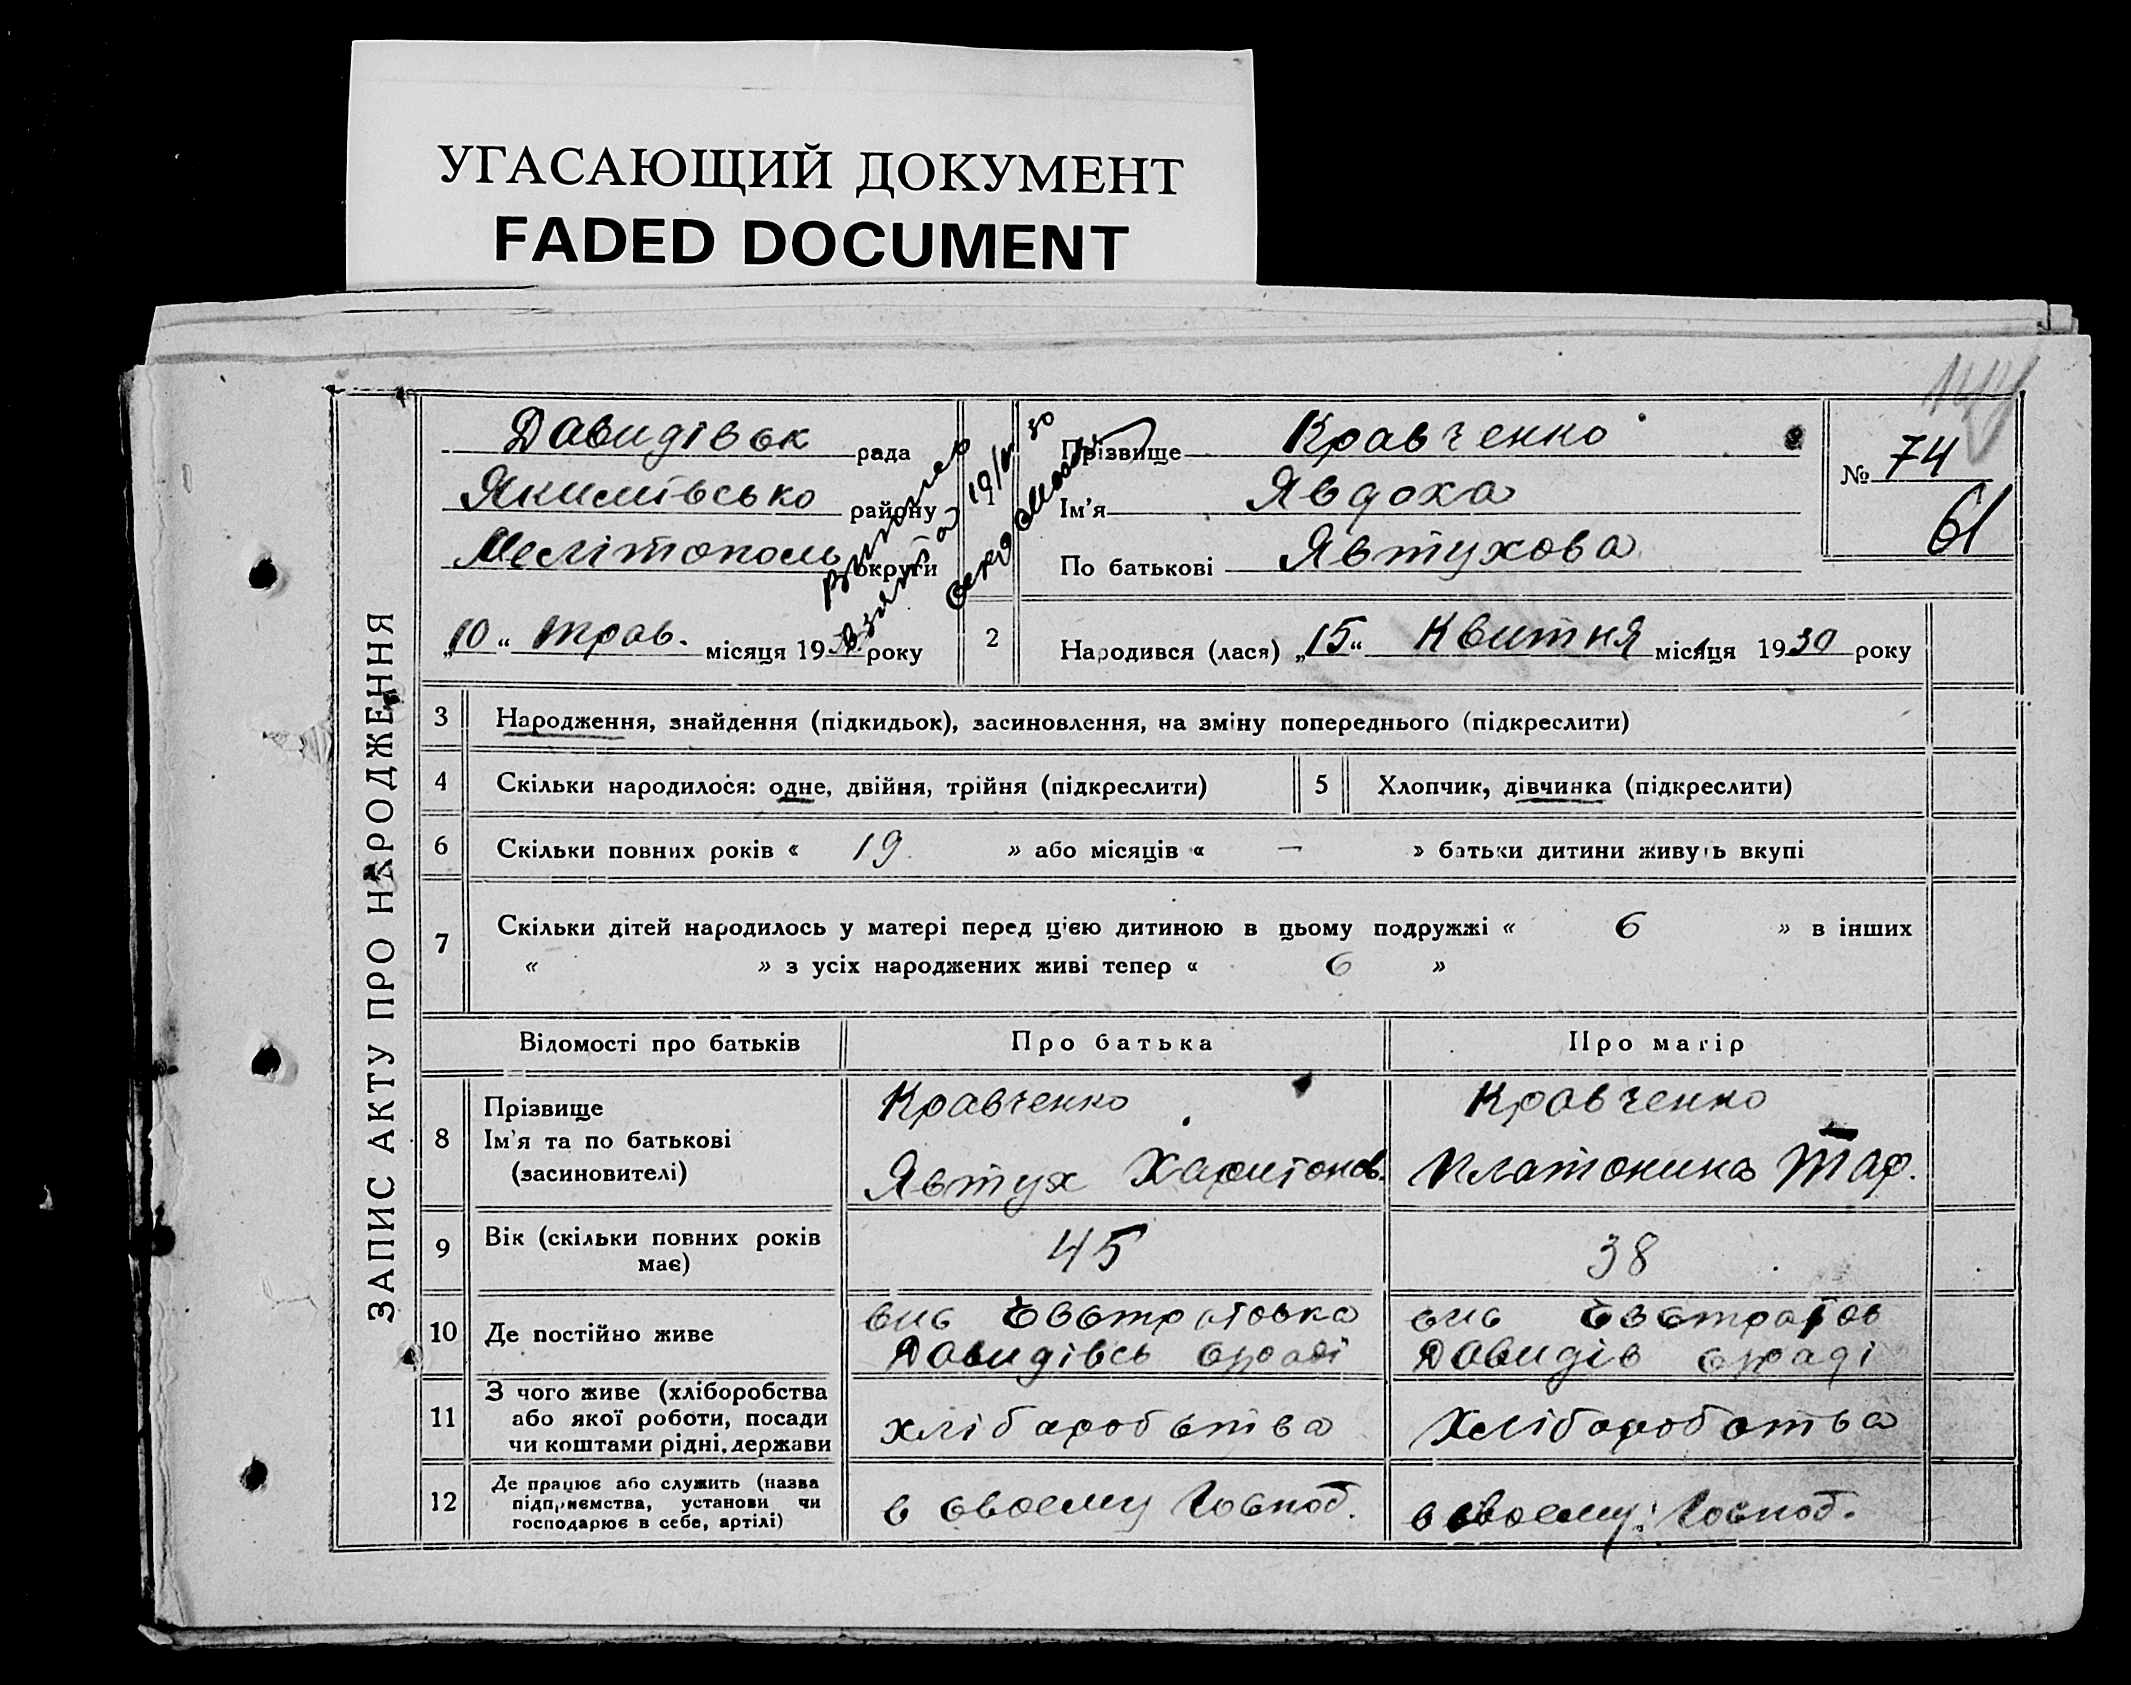 УГАСАЮЩИЙ ДОКУМЕНТ
FADED DOCUMENT
ЗАПИС АКТУ ПРО НАРОДЖЕННЯ
Давидівськ рада
Якимівсько району
Мелітополь округи
„10“ трав. місяця 1930 року
Виписка
взята 19/ 30
1
Прізвище Кравченко
Ім'я Явдоха
По батькові Явтухова
№ 74
61
2 Народився (лася) „15“ Квитня місяця 1930 року
3 Народження, знайдення (підкидьок), засиновлення, на зміну попереднього (підкреслити)
4 Скільки народилося: одне, двійня, трійня (підкреслити) 5 Хлопчик, дівчинка (підкреслити)
6 Скільки повних років « 19 » або місяців « — » батьки дитини живуть вкупі
7 Скільки дітей народилось у матері перед цією дитиною в цьому подружжі « 6 » в інших
« » з усіх народжених живі тепер « 6 »
Відомості про батьків Про батька Про матір
8 Прізвище
Ім'я та по батькові
(засиновителі)
Кравченко
Явтух Харитонов.
Кравченко
Платонина Тар.
9 Вік (скільки повних років
має)
45
38
10 Де постійно живе
Евстратовка
Давидівсь сраді
Евстратов
Давидів сраді
11 З чого живе (хліборобства
або якої роботи, посади
чи коштами рідні, держави
хлібаробства
Хлібаробства
12 Де працює або служить (назва
підприємства, установи чи
господарює в себе, артілі)
в своему господ.
в своему господ.